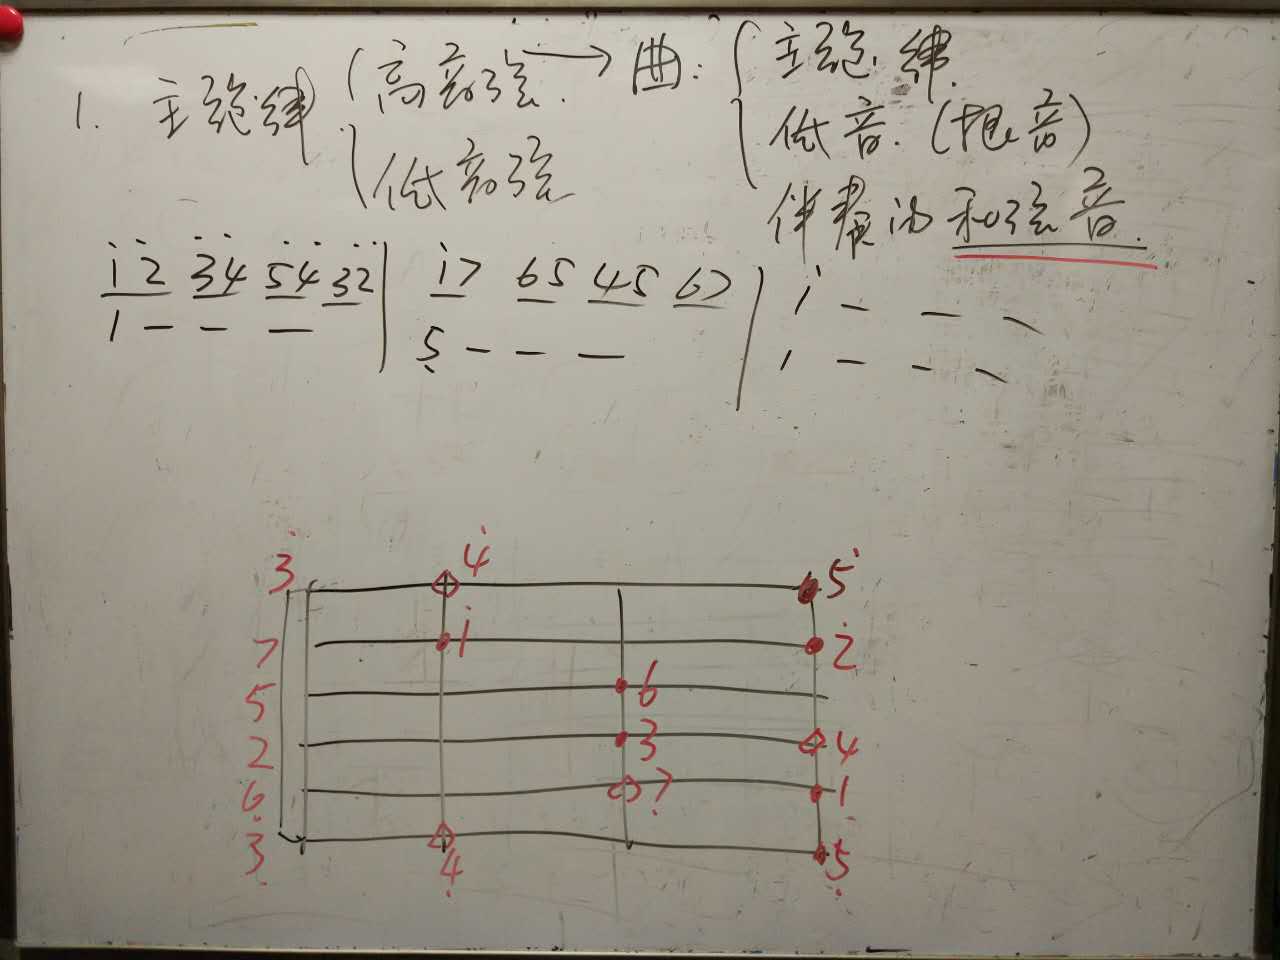 1. 主旋律 { 高音弦. → 曲: { 主旋律.
低音弦 低音. (根音)
伴奏的和弦音.
i̇ 2̇ 3̇ 4̇ 5̇ 4̇ 3̇ 2̇ | i̇ 7 6 5 4 5 6 7 | i̇ — — —
1 — — — | 5̣ — — — | 1 — — —
3̇ 4̇ 5̇
7 i̇ 2̇
5 6
2 3 4
6̣ 7̣ 1
3̣ 4̣ 5̣